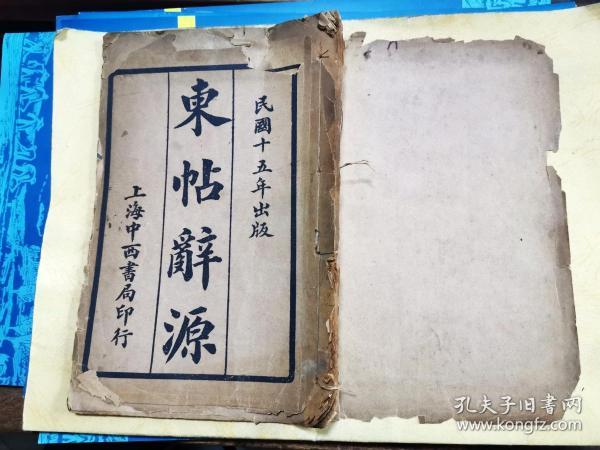 民國十五年出版
柬帖辭源
上海中西書局印行
孔夫子旧书网
www.kongfz.com